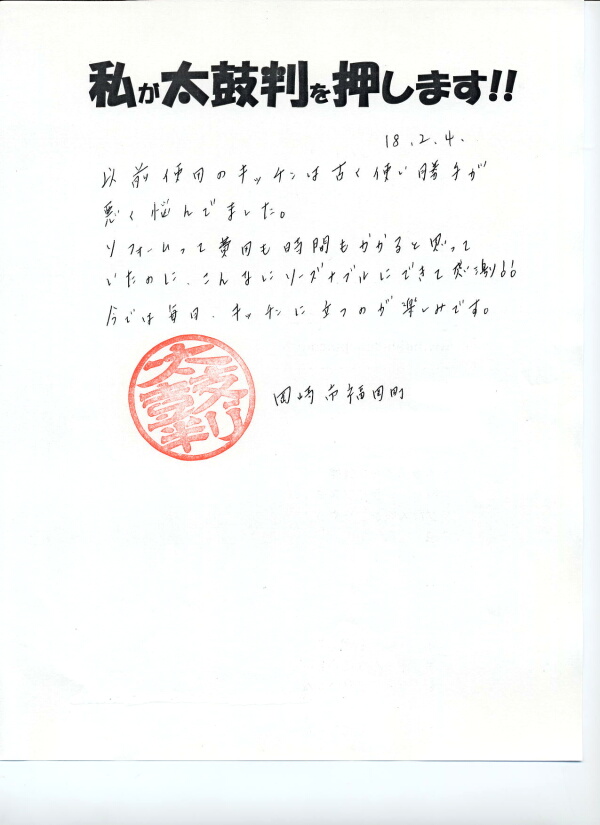 私が太鼓判を押します!!
18.2.4.
以前使用のキッチンは古く使い勝手が
悪く悩んでました。
リフォームって費用も時間もかかると思って
いたのに、こんなにリーズナブルにできて感激!!
今では毎日、キッチンに立つのが楽しみです。
太鼓判
岡崎市福岡町